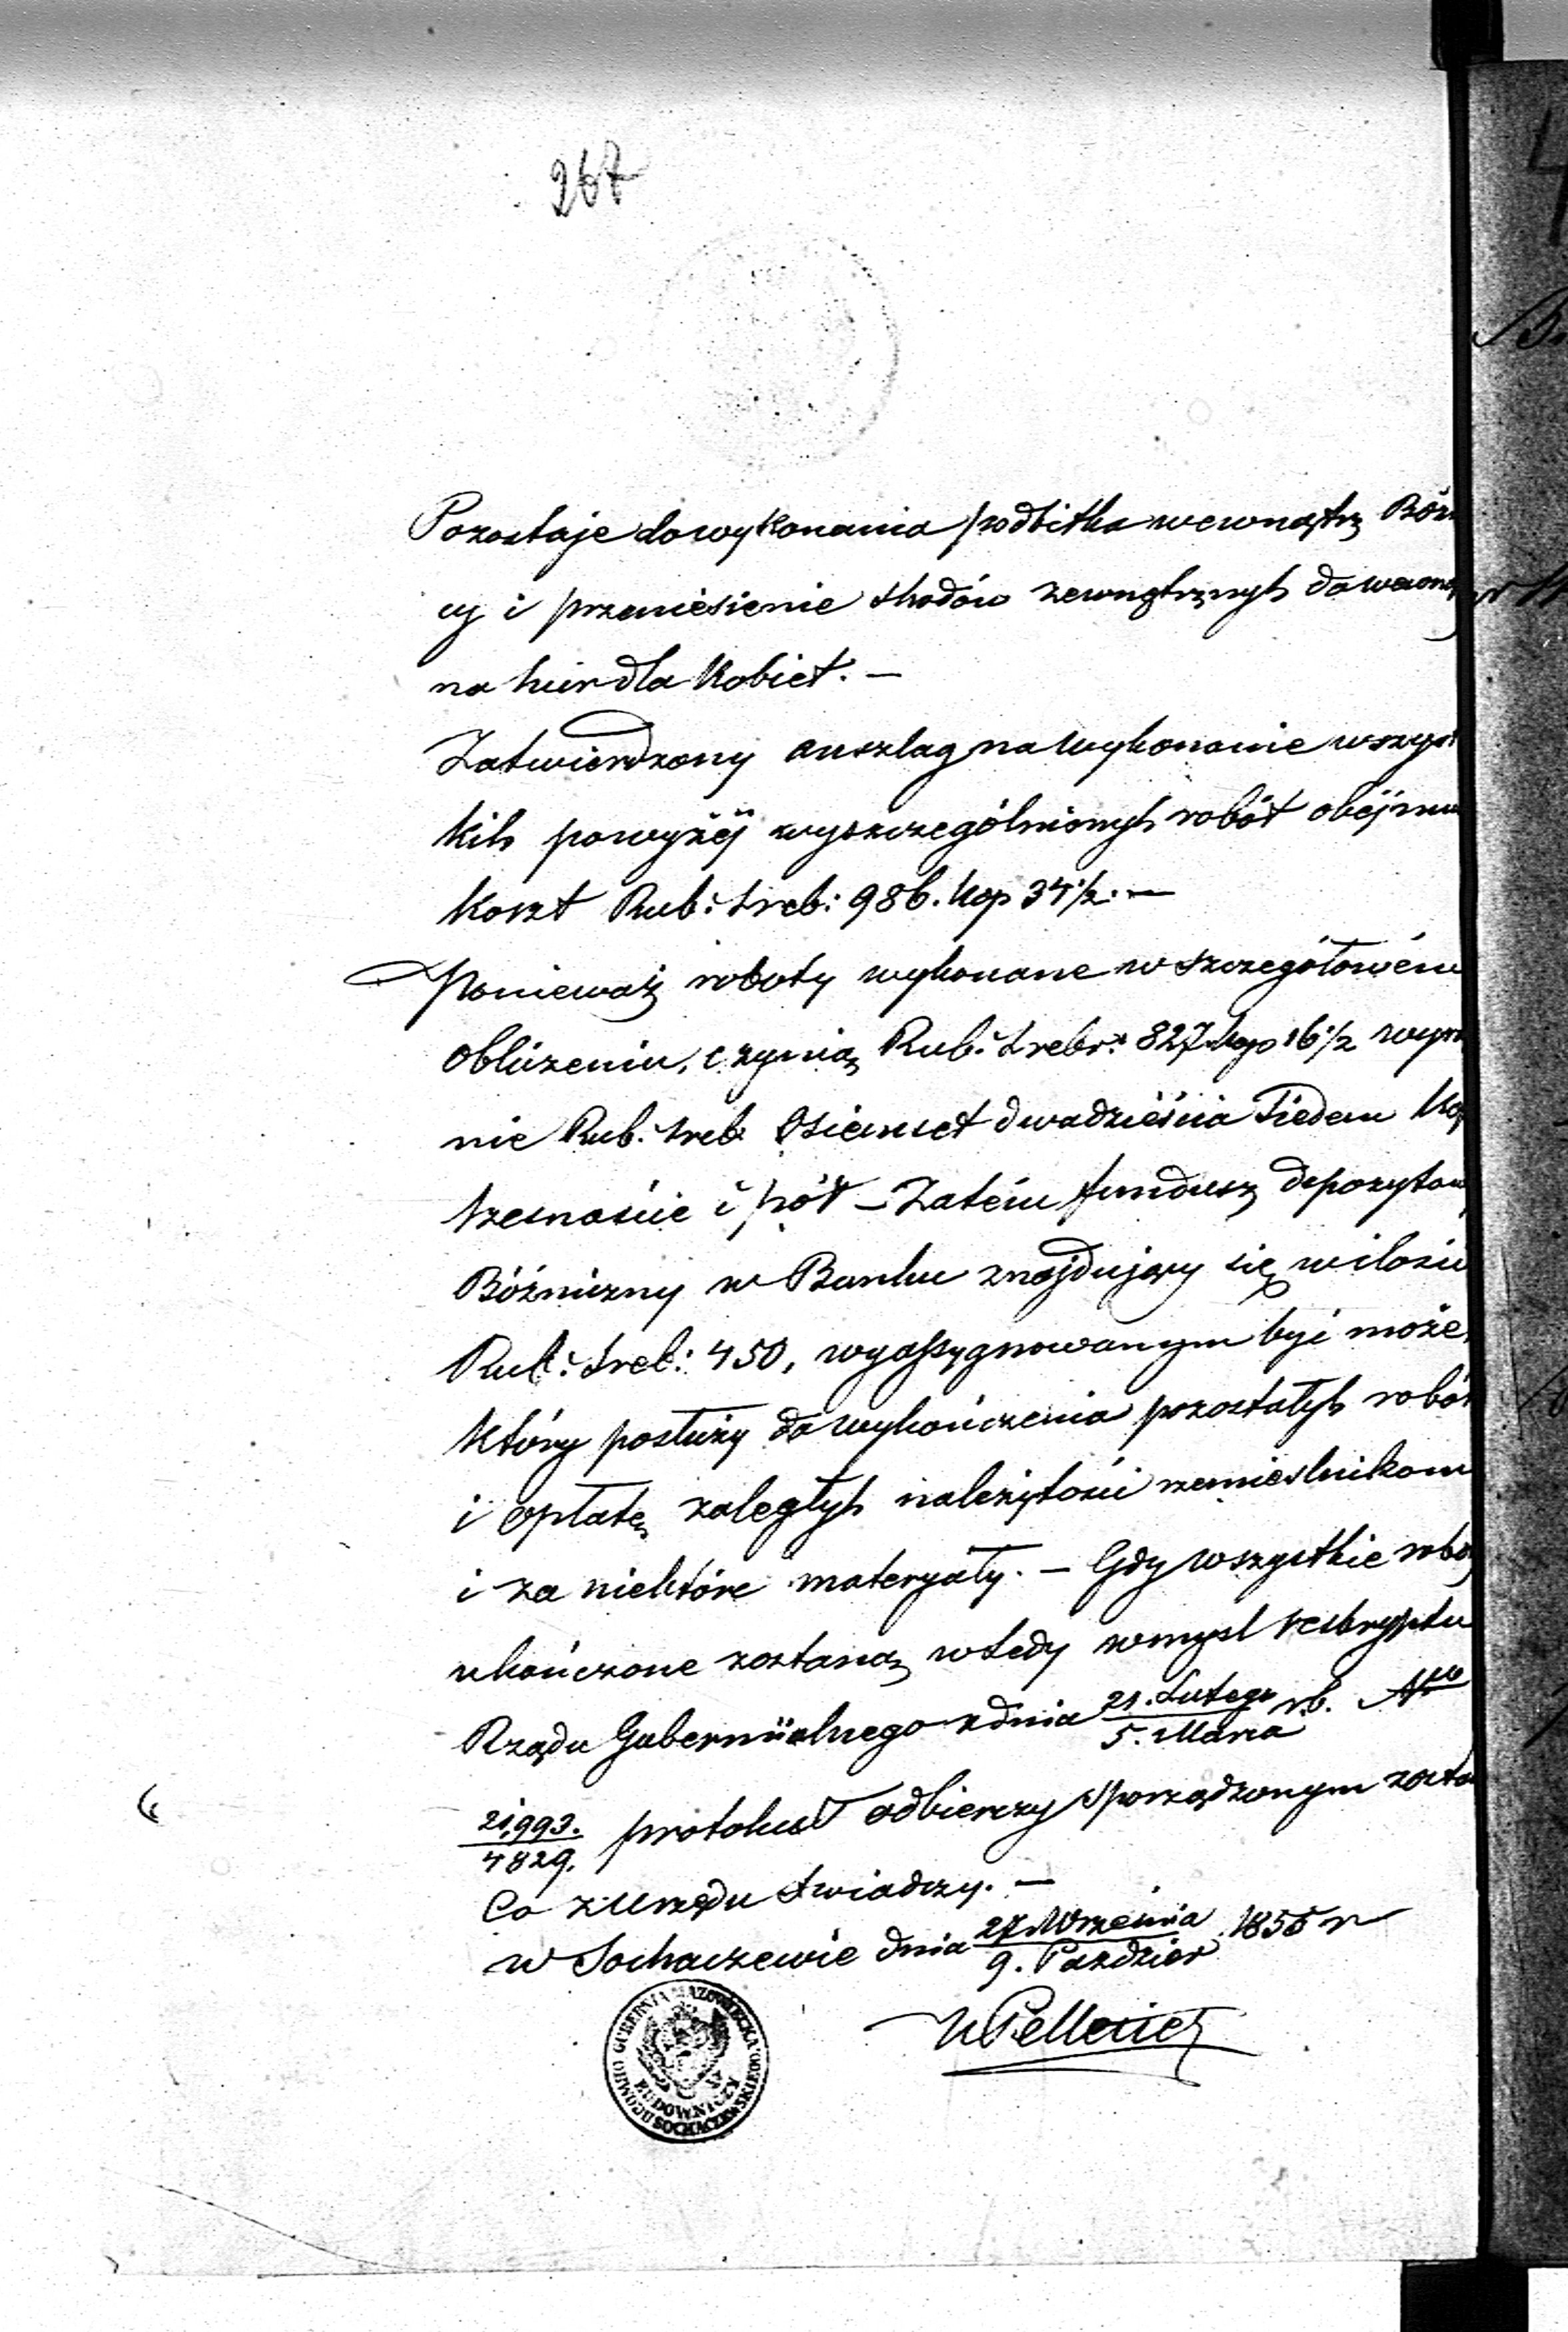 267
Pozostaje do wykonania podbitka wewnątrz Bóżn
cy i przeniesienie schodów zewnętrznych do wewną
na chór dla Kobiet. —
Zatwierdzony anszlag na wykonanie wszyst
kich powyżéj wyszczególnionych robót obejmu
koszt Rub: Sreb: 986. kop 34 1/2. —
Ponieważ roboty wykonane w szczegółowém
obliczeniu, czynią Rub: Srebr: 827 kop 16 1/2 wyra
nie Rub. Sreb Osiemset dwadzieścia Siedem Kop
szesnaście i pół — Zatém fundusz depozytow
Bóżniczny w Banku znajdujący się w ilości
Rub: Sreb: 450, wyassygnowanym być może,
który posłuży do wykończenia pozostałych robót
i opłatę zaległych należytości rzemieślnikom
i za niektóre materyały. — Gdy wszystkie robo
ukończone zostaną wtedy w myśl reskryptu
Rządu Gubernialnego z dnia 21. Lutego / 5. Marca r.b. No
21,993. / 4829. protokuł odbierczy sporządzonym zosta
Co z Urzędu świadczy. —
w Sochaczewie dnia 27 Września / 9. Paździer 1855 r
GUBERNIA MAZOWIECKA
BUDOWNICZY
OBWODU SOCHACZEWSKIEGO